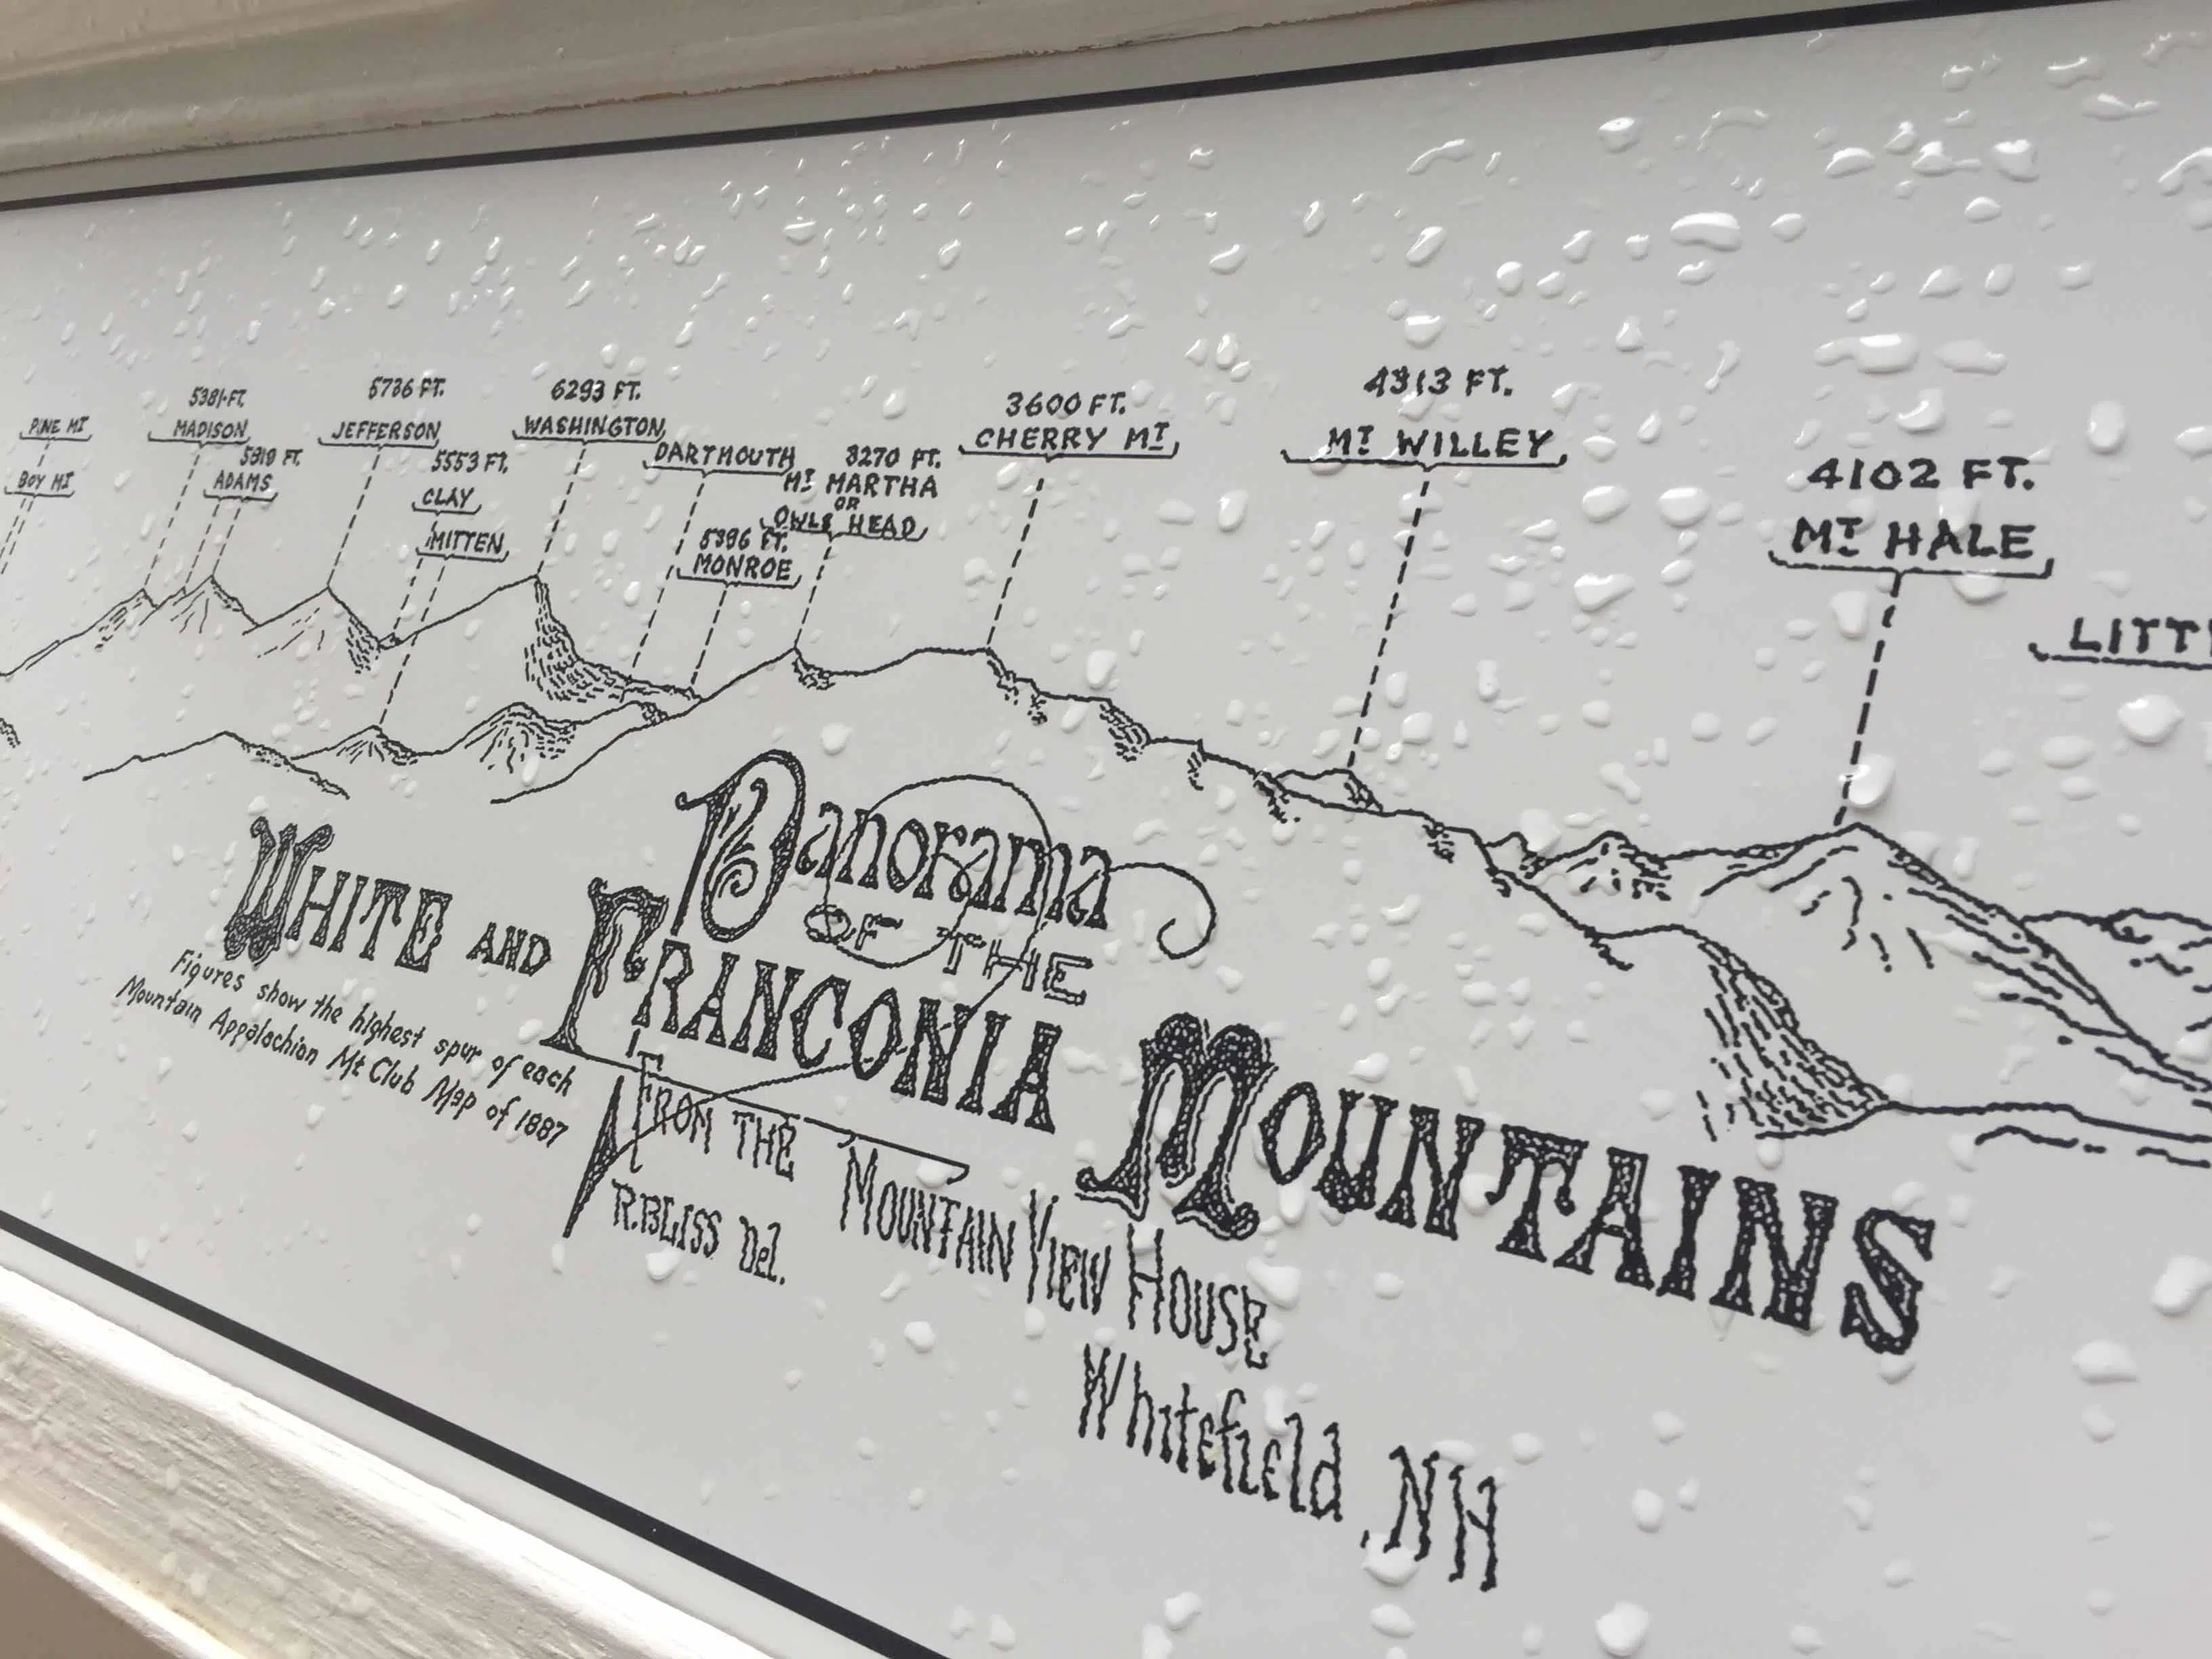 PINE MT
BOY MT
5381 FT.
MADISON
5819 FT.
ADAMS
5736 FT.
JEFFERSON
5553 FT.
CLAY
MITTEN
6293 FT.
WASHINGTON
DARTMOUTH
5396 FT.
MONROE
3270 FT.
MT MARTHA
OR
OWLS HEAD
3600 FT.
CHERRY MT
4313 FT.
MT WILLEY
4102 FT.
MT HALE
Panorama
OF THE
WHITE AND FRANCONIA MOUNTAINS
Figures show the highest spur of each
Mountain Appalachian Mt Club Map of 1887
FROM THE MOUNTAIN VIEW HOUSE
R.BLISS Del.
Whitefield, NH